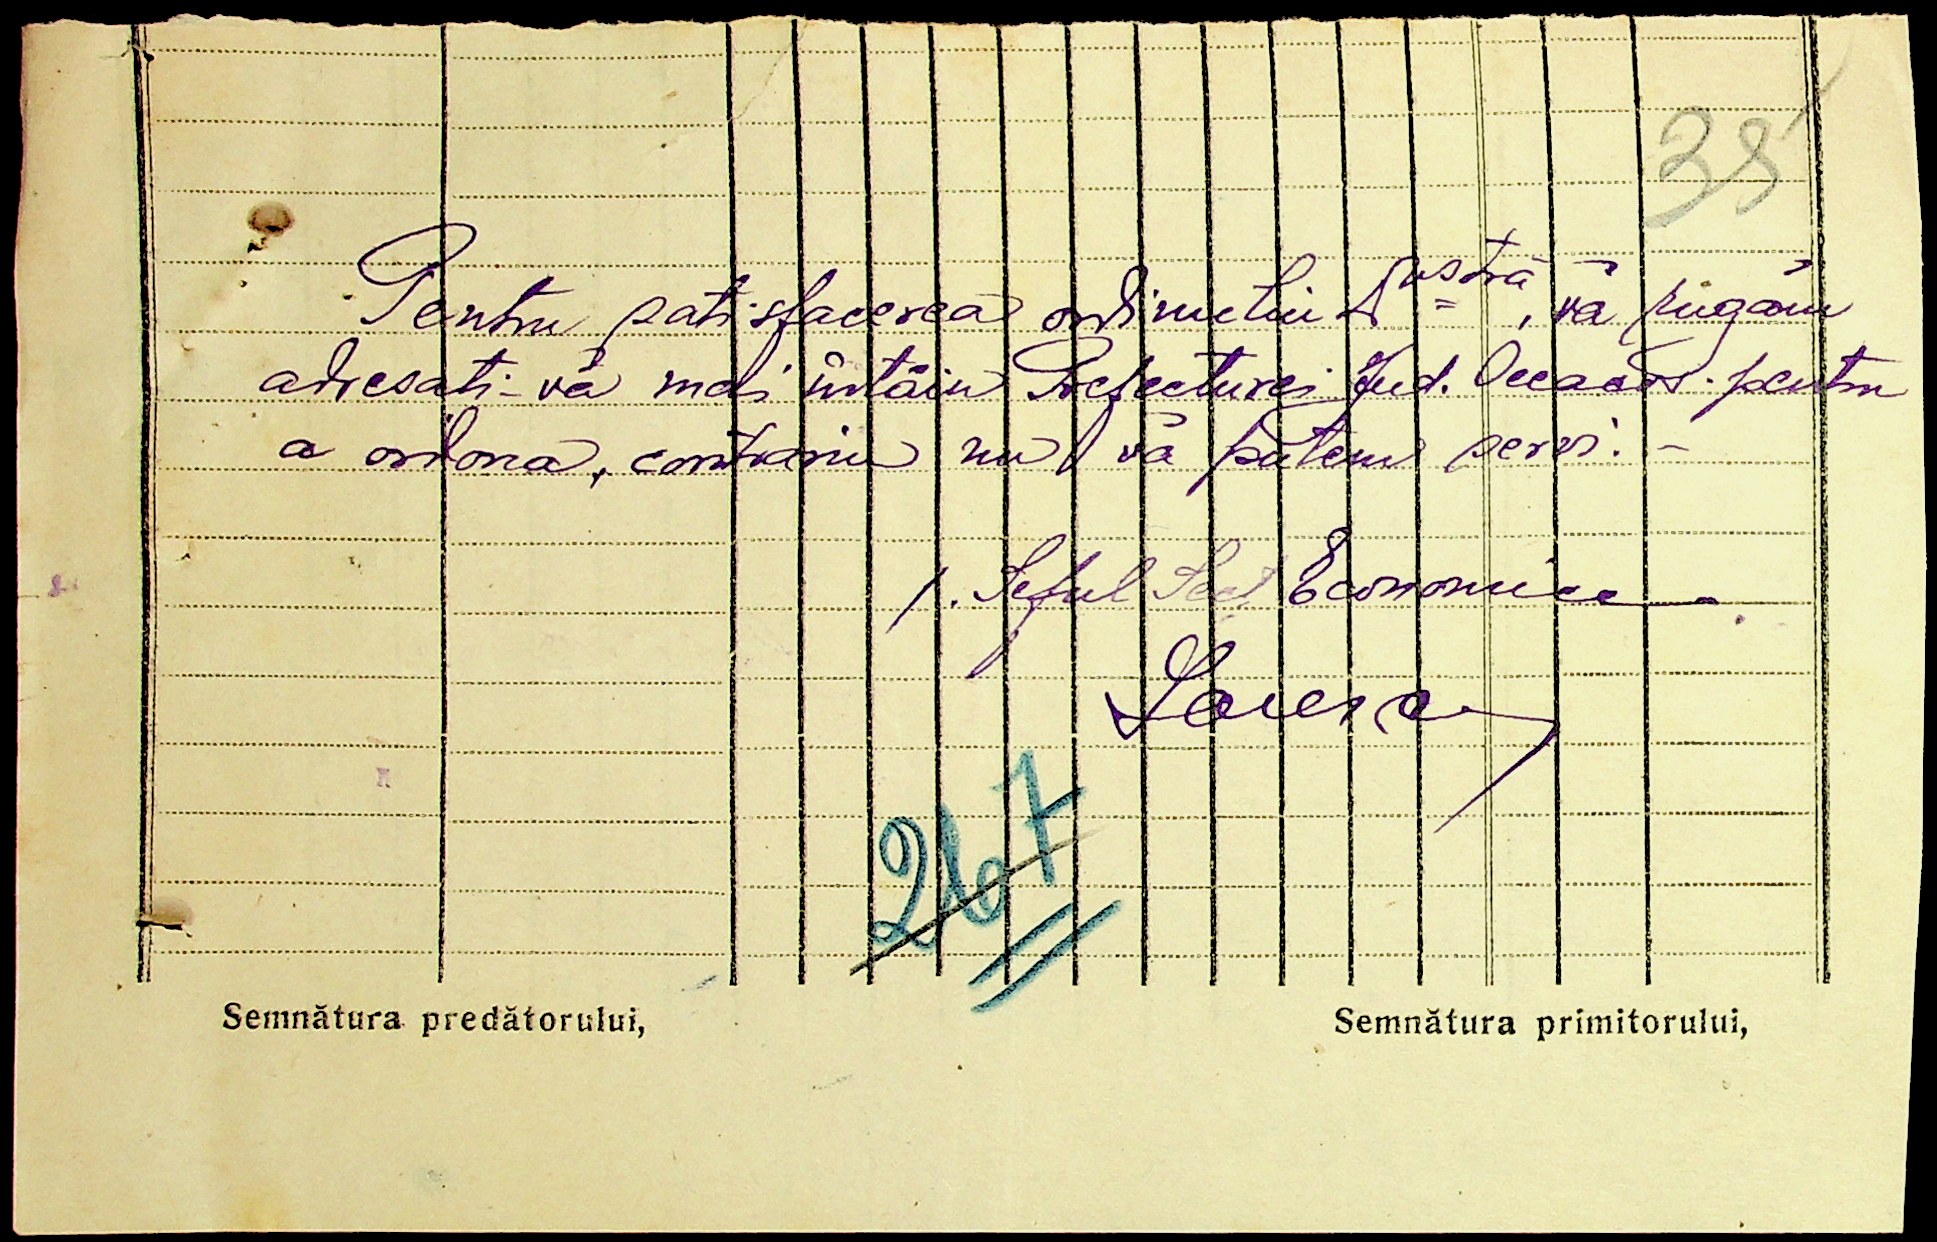 35
Pentru satisfacerea ordinului Dvstră, vă rugăm
adresati-vă mai întâiu Prefecturei Jud. Oceacov pentru
a ordona, contrariu nu vă putem servi. -
p. Șeful Sect Economice
267
Semnătura predătorului,
Semnătura primitorului,